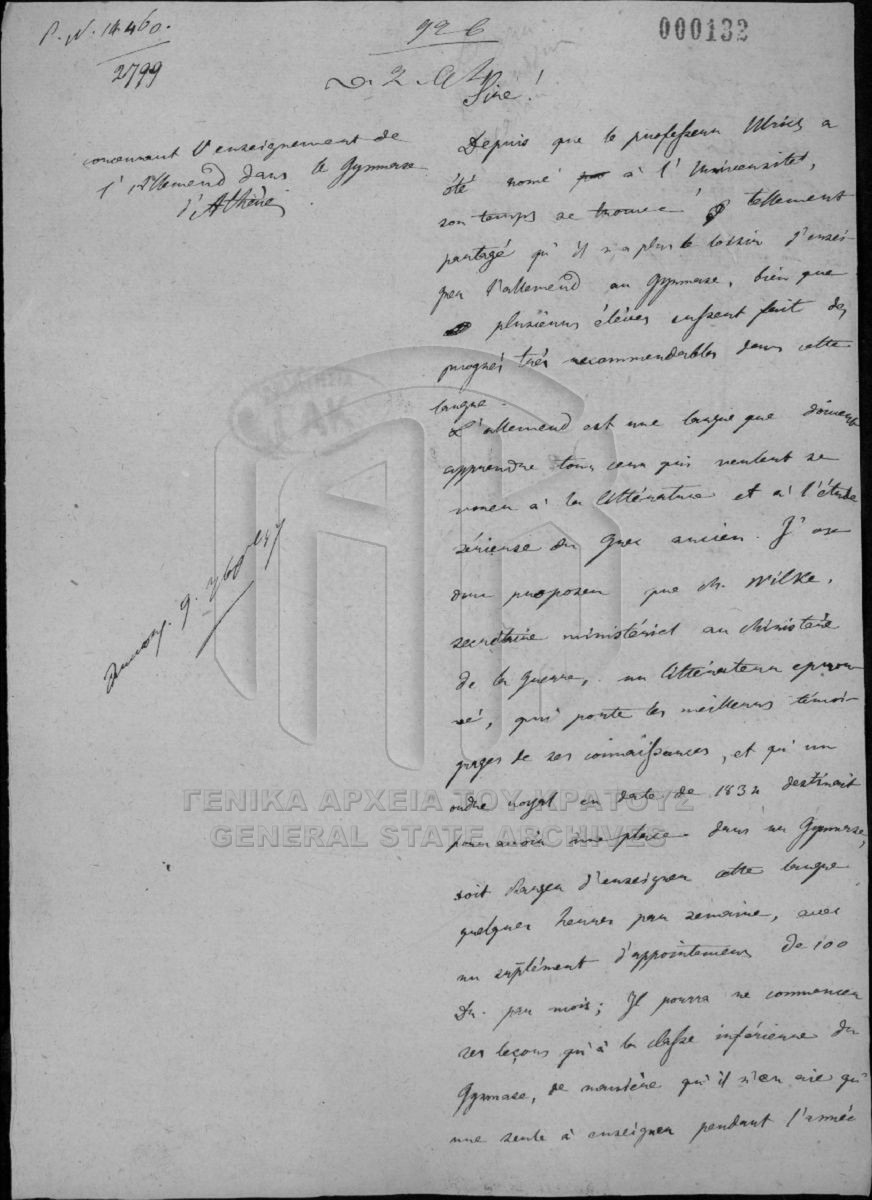 P. N. 14460.
2799
92 b
000132
Sire!
concernant l'enseignement de
l'Allemand dans le Gymnase
d'Athène
Depuis que le professeur Ulrichs a
été nomé à l'Université,
son temps se trouve tellement
partagé qu'il n'a plus le loisir d'ensei-
gner l'allemand au Gymnase, bien que
plusieurs élèves eussent fait des
progrès très recommendables dans cette
langue.
L'allemand est une langue que doivent
apprendre tous ceux qui veulent se
vouer à la littérature et à l'étude
sérieuse du Grec ancien. J'ose
donc proposer que Mr. Wilke,
secrétaire ministériel au Ministère
de la Guerre, un littérateur eprou-
vé, qui porte les meilleurs témoi-
gnages de ses connaissances, et qu'un
ordre royal en date de 1834 destinait
pour avoir une place dans un Gymnase,
soit chargé d'enseigner cette langue
quelques heures par semaine, avec
un suplément d'appointemens de 100
Dr. par mois; Il pourra ne commencer
ses leçons qu'à la classe inférieure du
Gymnase, de manière qu'il n'en aie qu'
une seule à enseigner pendant l'année
ΓΕΝΙΚΑ ΑΡΧΕΙΑ ΤΟΥ ΚΡΑΤΟΥΣ
GENERAL STATE ARCHIVES